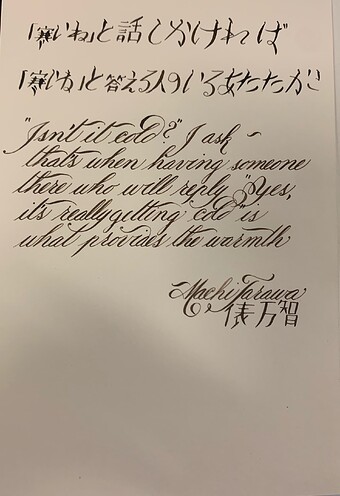 「寒いね」と話しかければ
「寒いね」と答える人のいるあたたかさ
"Isn't it cold?" I ask –
that's when having someone
there who will reply "Yes,
it's really getting cold" is
what provides the warmth
Machi Tarawa
俵万智